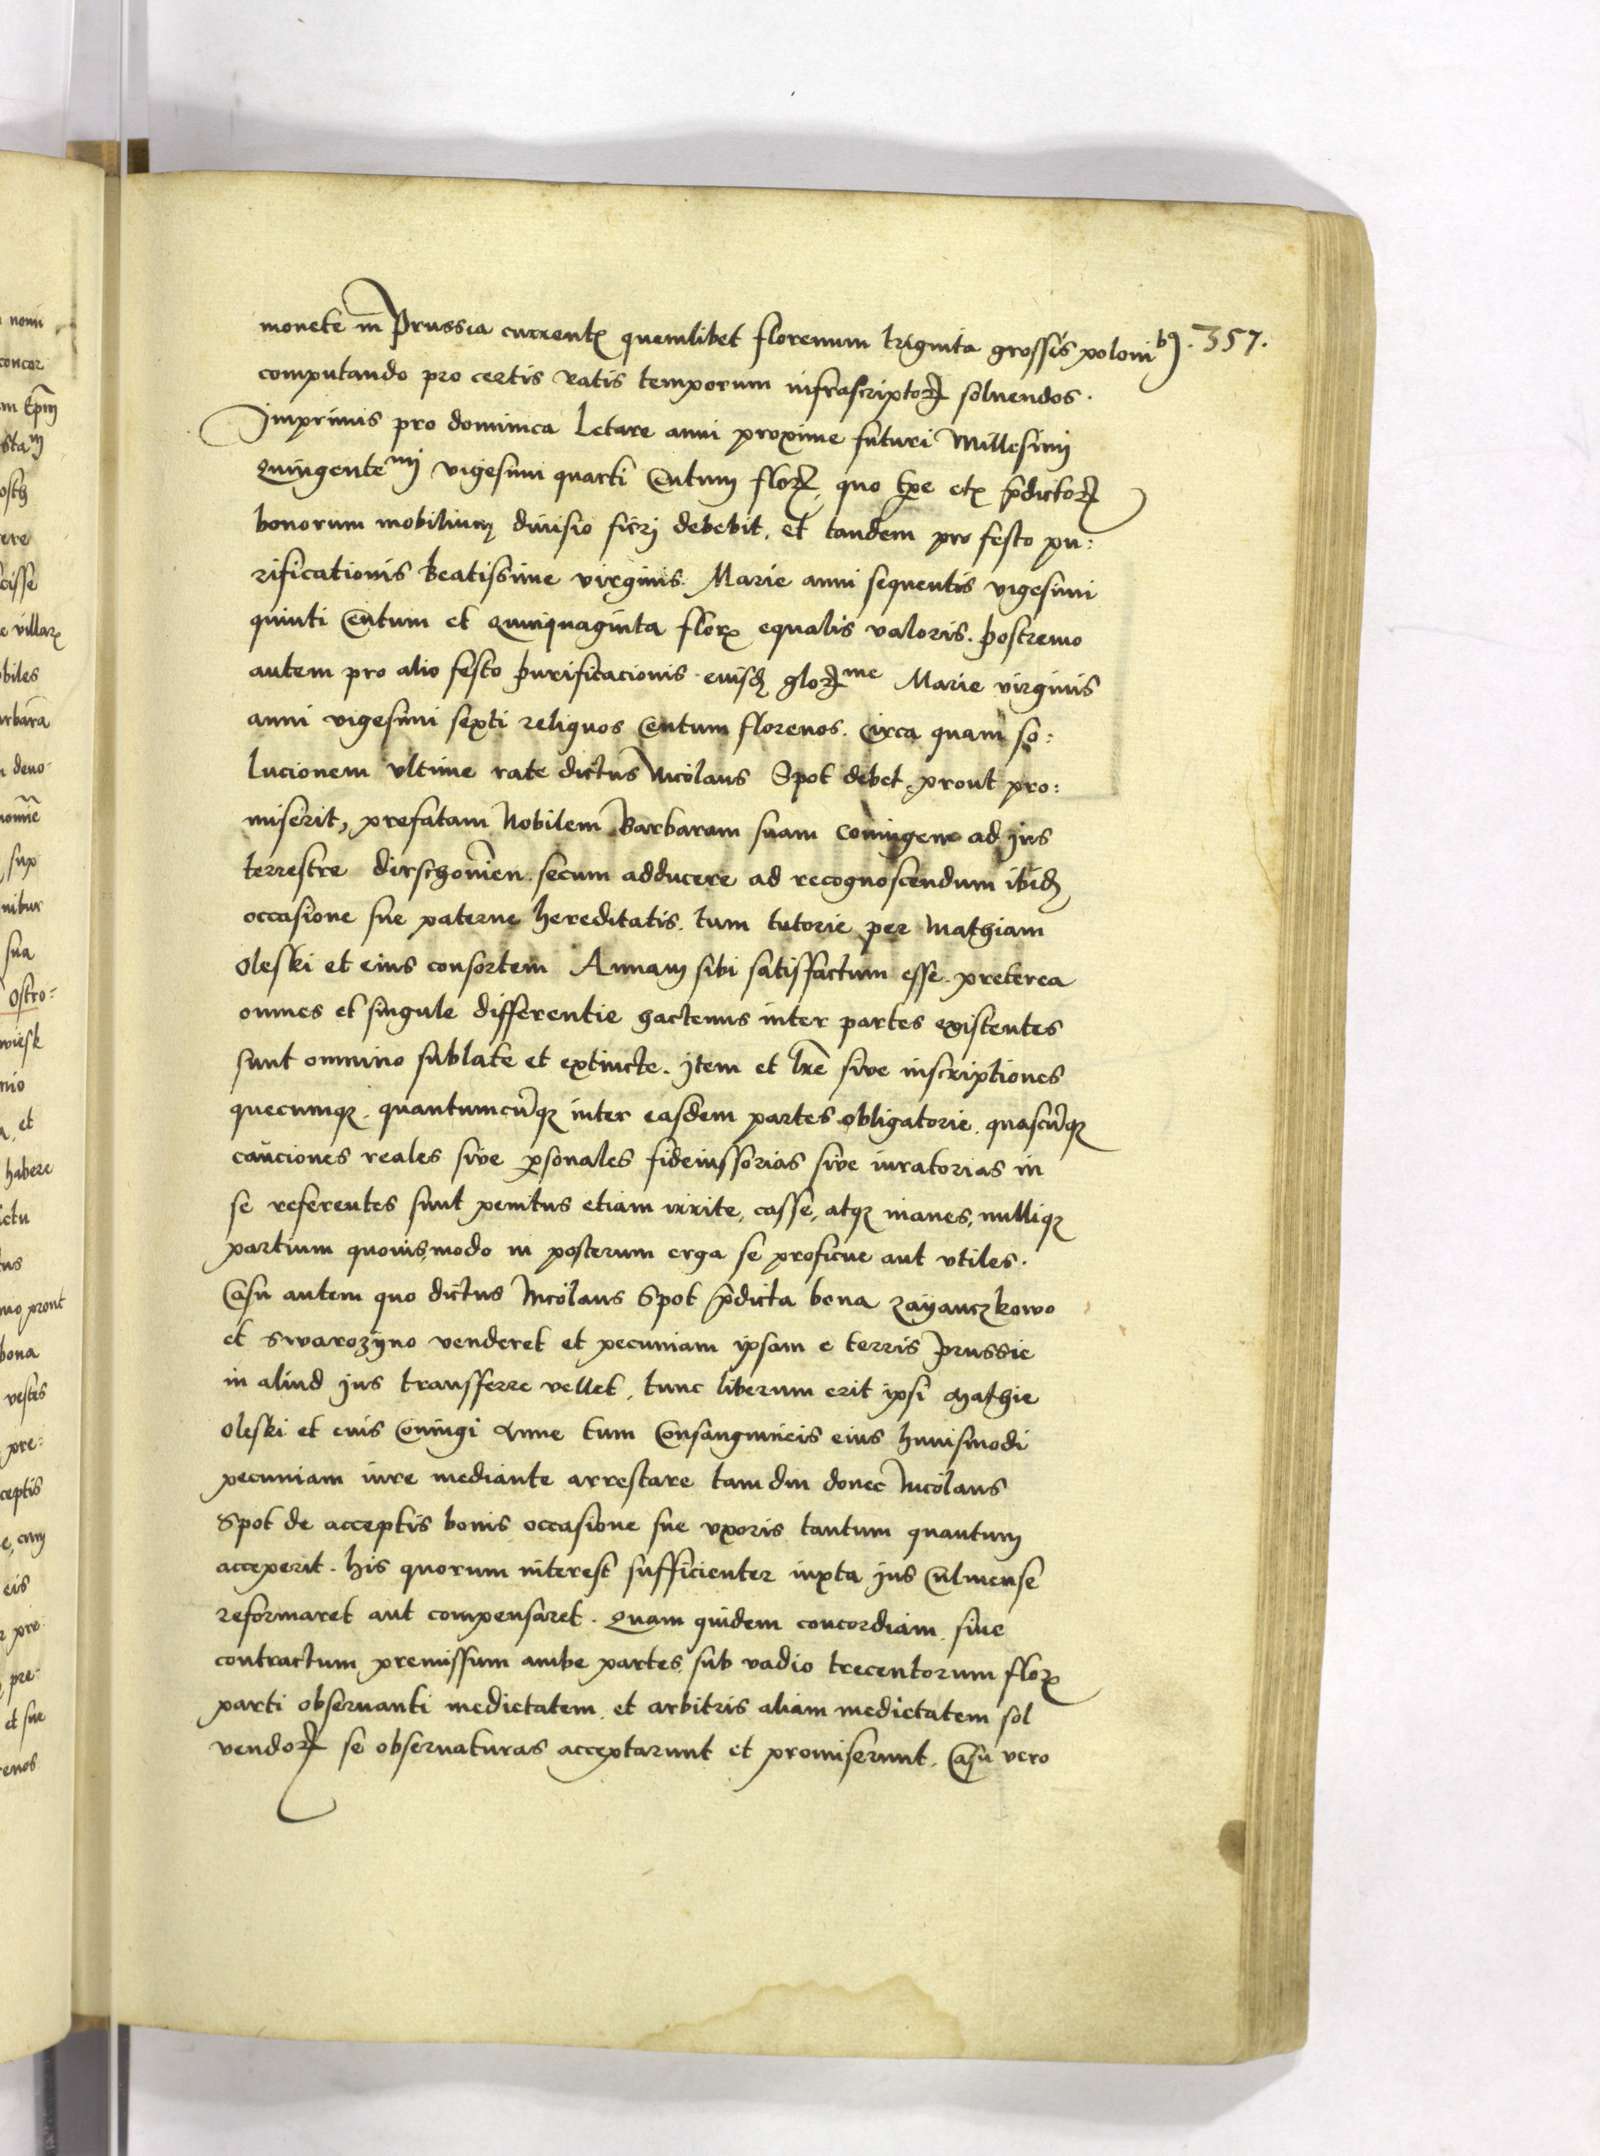 monete in Prussia currentꝭ quemlibet florenum triginta grossis poloniᵇꝰ. 357.
computando pro certis ratis temporum infrascriptoꝝ soluendos.
Imprimis pro dominica Letare anni proxime futuri Millesimj
Quingenteᵐⁱ vigesimi quarti Centum floꝝ, quo tꝑe etꝭ p̄dictoꝝ
bonorum mobilium diuisio fieri debebit, et tandem pro festo pu:
rificationis Beatissime virginis Marie anni sequentis vigesimi
quinti Centum et Quinquaginta floꝝ equalis valoris. Postremo
autem pro alio festo Purificacionis eiusd gloꝝᵐᵉ Marie virginis
anni vigesimi sexti reliquos Centum florenos. Circa quam so:
lucionem vltime rate dictus Nicolaus Spot debet, prout pro:
miserit, prefatam Nobilem Barbaram suam Coniugem ad jus
terrestre dirschouien. secum adducere ad recognoscendum ibid
occasione sue paterne hereditatis. tum tutorie per Mathiam
Oleski et eius consortem Annam sibi satisfactum esse. preterea
omnes et singule differentie hactenus inter partes existentes
sunt omnino sublate et extincte. Item et lr̄e siue inscriptiones
quecumqꝫ quantumcūqꝫ inter easdem partes obligatorie, quascūqꝫ
cauciones reales siue ꝑsonales fideiussorias siue iuratorias in
se referentes sunt penitus etiam irrite, casse, atqꝫ inanes, nulliqꝫ
partium quouismodo in posterum erga se proficue aut vtiles.
Casu autem quo dictus Nicolaus Spot p̄dicta bona Zayanczkowo
et Swarozyno venderet et pecuniam ipsam e terris Prussie
in aliud jus transferre vellet, tunc liberum erit ipsi Mathie
Oleski et eius Coniugi Anne tum Consanguineis eius huiusmodi
pecuniam iure mediante arrestare tam diu donec Nicolaus
Spot de acceptis bonis occasione sue vxoris tantum quantum
acceperit. his quorum interest sufficienter iuxta jus Culmense
reformaret aut compensaret. Quam quidem concordiam siue
contractum premissum ambe partes sub vadio trecentorum floꝝ
parti obseruanti medietatem et arbitris aliam medietatem sol
vendoꝝ se obseruaturas acceptarunt et promiserunt. Casu vero